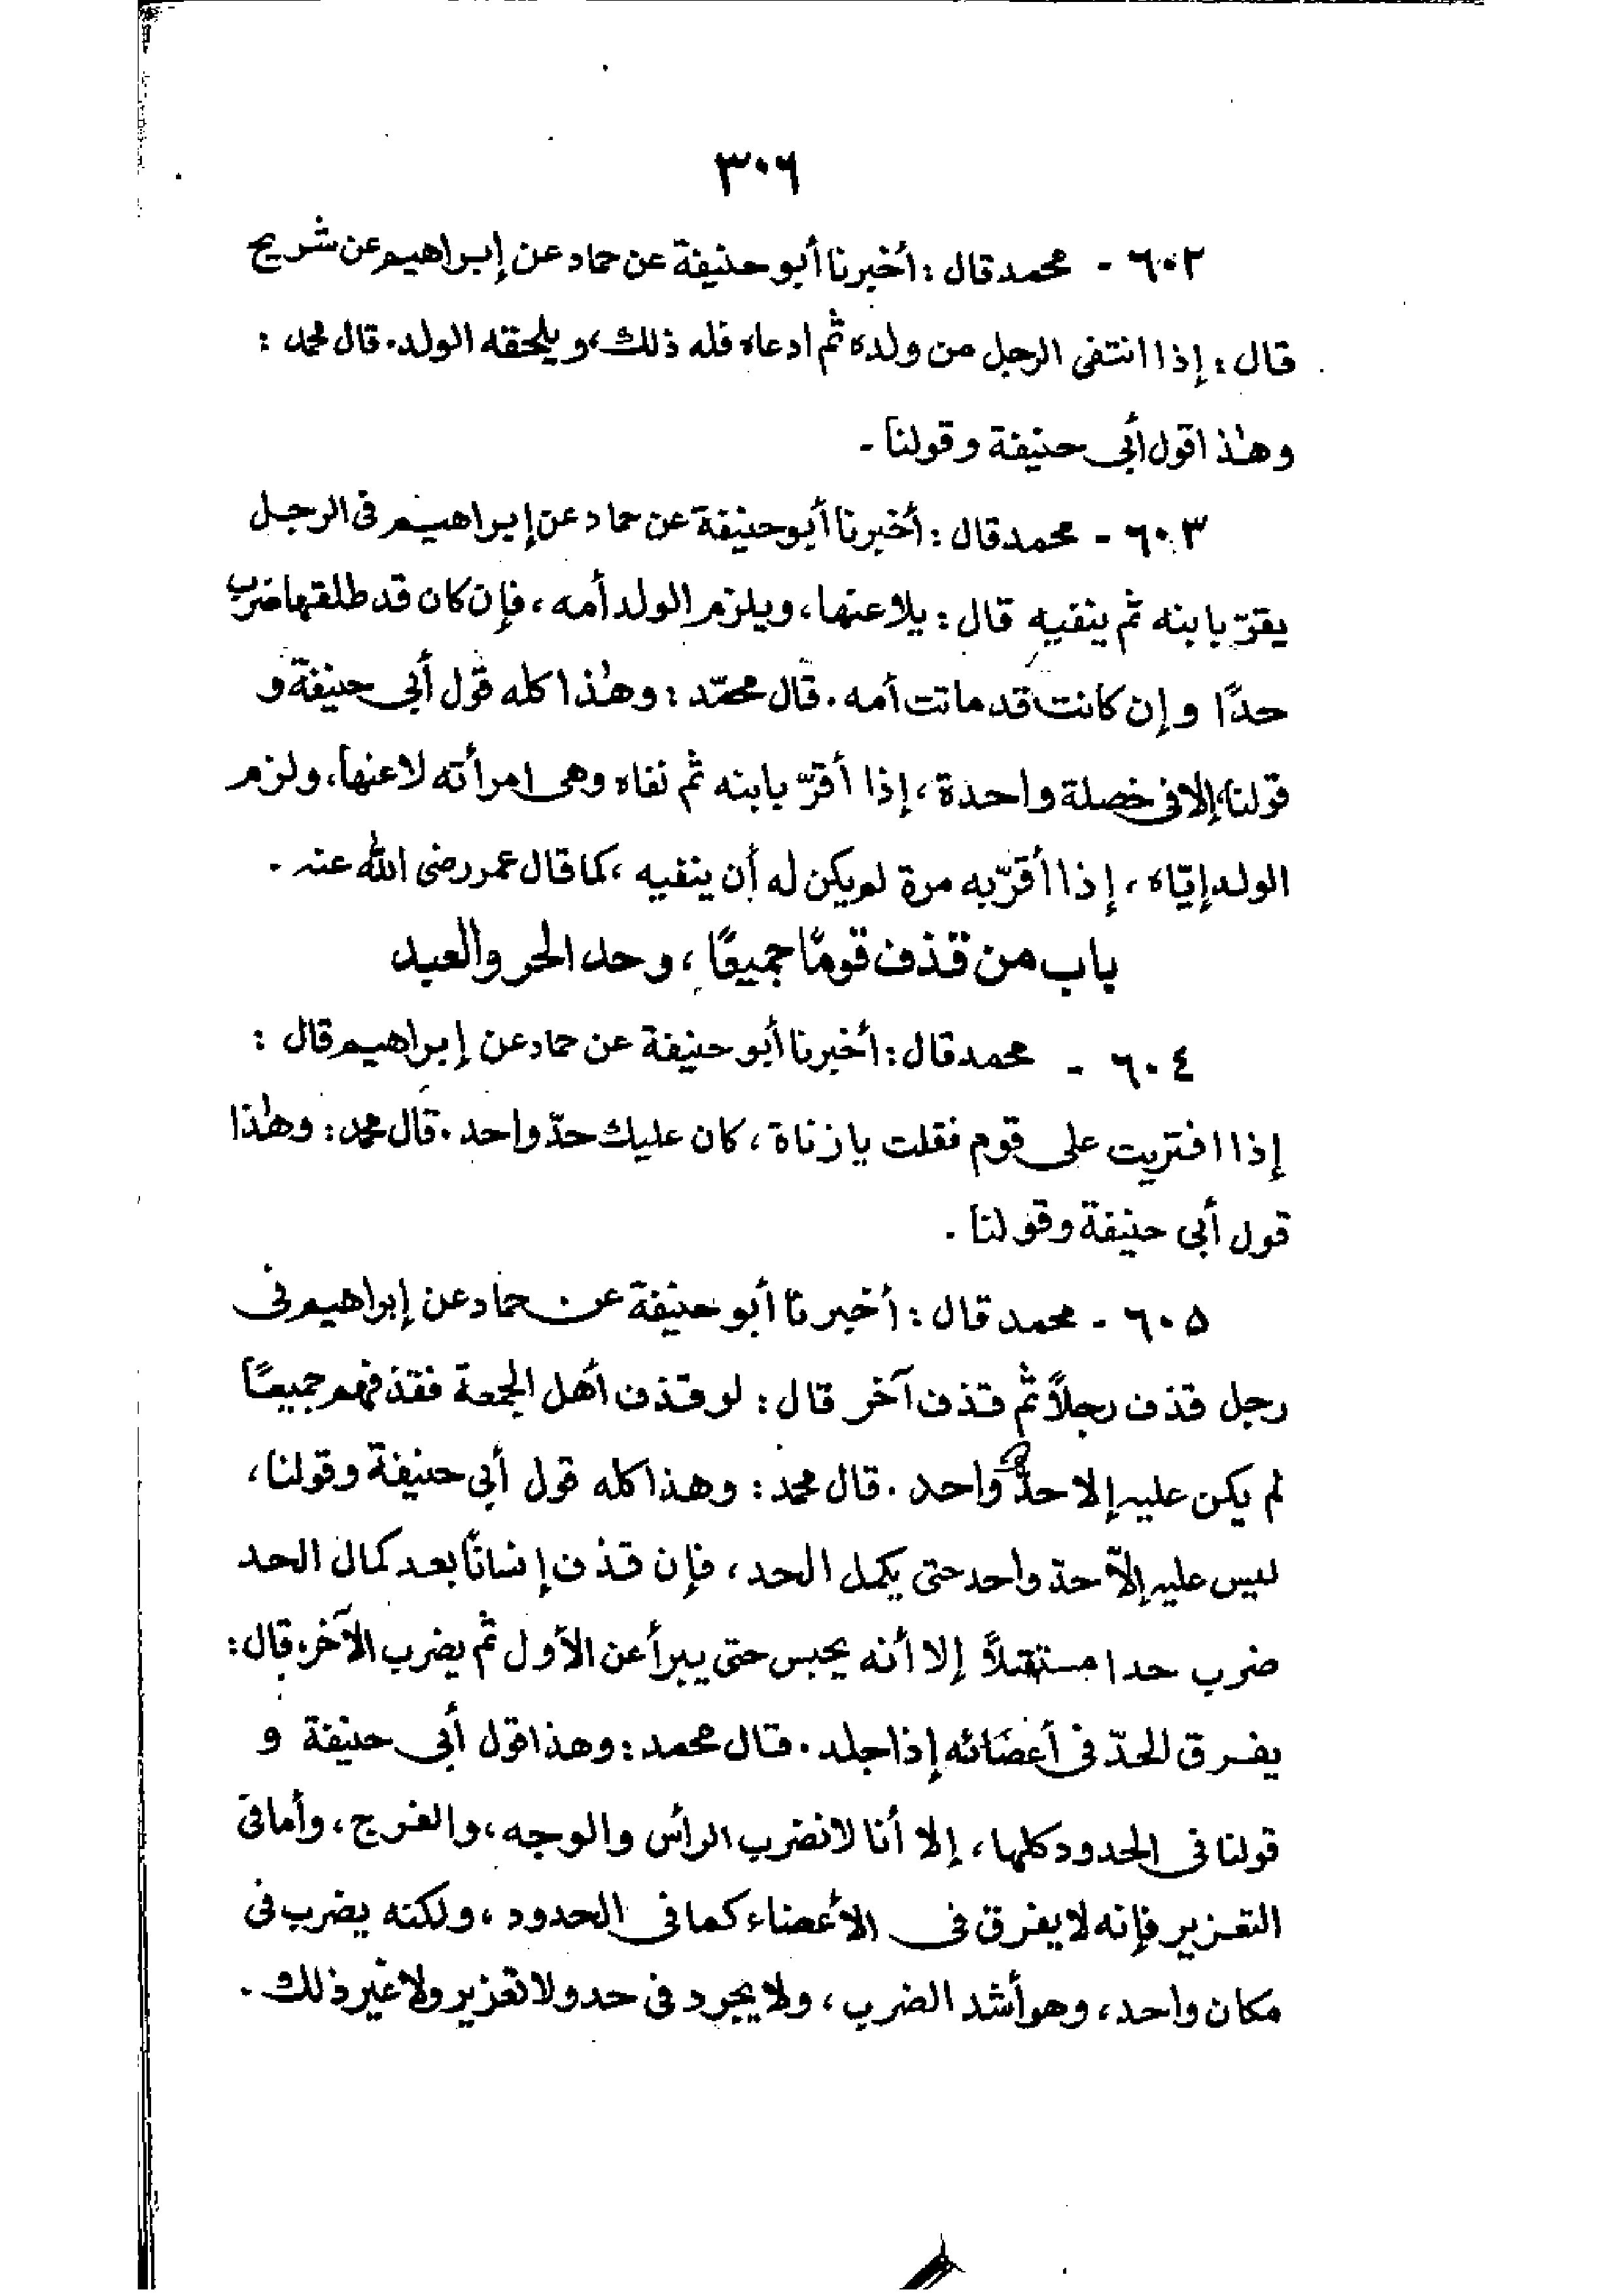 ٣٠٦
٦٠٢ - محمد قال : أخبرنا أبو حنيفة عن حماد عن إبراهيم عن شريح
قال : إذا انتفى الرجل من ولده ثم ادعاه فله ذلك، ويلحقه الولد. قال محمد :
وهٰذا قول أبى حنيفة وقولنا -
٦٠٣ - محمد قال : أخبرنا أبو حنيفة عن حماد عن إبراهيم فى الرجل
يقرّ بابنه ثم ينفيه قال : يلاعنها، ويلزم الولد أمه، فإن كان قد طلقها ضرب
حدًا وإن كانت قد ماتت أمه. قال محمّد : وهٰذا كله قول أبى حنيفة و
قولنا، إلا فى خصلة واحدة، إذا أقرّ بابنه ثم نفاه وهى امرأته لاعنها، ولزم
الولد إيّاه، إذا أقرّ به مرة لم يكن له أن ينفيه، كما قال عمر رضى الله عنه .
باب من قذف قومًا جميعًا، وحد الحر والعبد
٦٠٤ - محمد قال : أخبرنا أبو حنيفة عن حماد عن إبراهيم قال :
إذا افتريت على قوم فقلت يا زناة، كان عليك حدّ واحد. قال محمد : وهٰذا
قول أبى حنيفة وقولنا .
٦٠٥ - محمد قال : أخبرنا أبو حنيفة عن حماد عن إبراهيم فى
رجل قذف رجلاً ثم قذف آخر قال : لو قذف أهل الجمعة فقذفهم جميعًا
لم يكن عليه إلا حدٌّ واحد . قال محمد : وهذا كله قول أبي حنيفة وقولنا،
ليس عليه إلاّ حدّ واحد حتى يكمل الحد، فإن قذف إنسانًا بعد كمال الحد
ضرب حدا مستقبلاً إلا أنه يحبس حتى يبرأ عن الأول ثم يضرب الآخر، قال :
يفرق الحدّ فى أعضائه إذا جلد . قال محمد : وهذا قول أبى حنيفة و
قولنا فى الحدود كلها، إلا أنا لا نضرب الرأس والوجه، والفرج، وأما فى
التعزير فإنه لا يفرق فى الأعضاء كما فى الحدود، ولكنه يضرب فى
مكان واحد، وهو أشد الضرب، ولا يجرد فى حد ولا تعزير ولا غير ذلك .